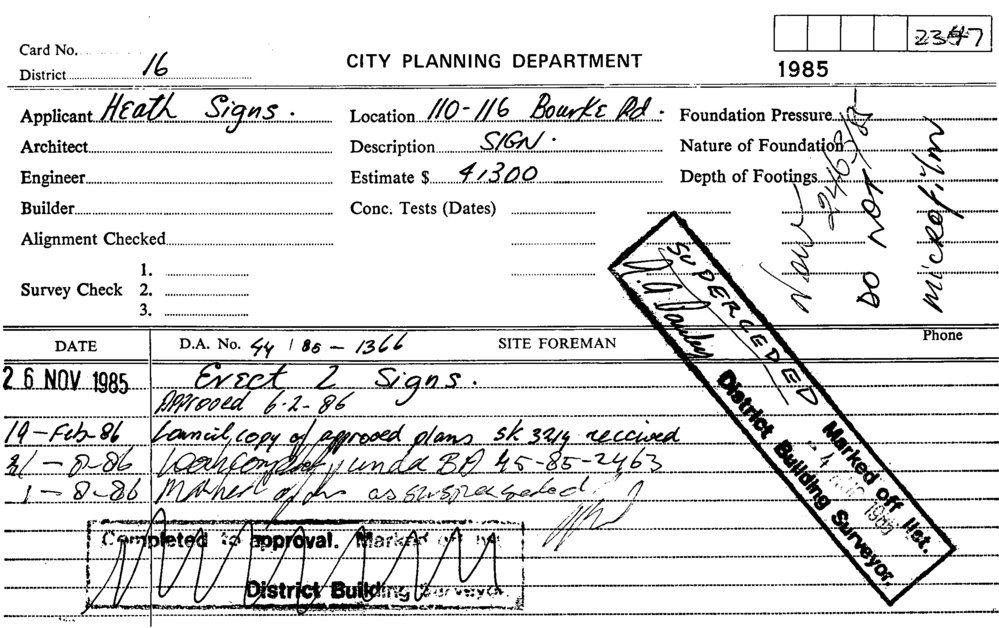 Card No.
2347
District 16
CITY PLANNING DEPARTMENT
1985
Applicant Heath Signs.
Location 110-116 Bourke Rd.
Foundation Pressure
Architect
Description SIGN.
Nature of Foundation
Engineer
Estimate $ 41300
Depth of Footings
Builder
Conc. Tests (Dates)
Alignment Checked
1.
Survey Check 2.
3.
Now 2463/85
DO NOT
microfilm
DATE
D.A. No. 44 / 85 - 1366
SITE FOREMAN
Phone
26 NOV 1985
Erect 2 Signs.
Approved 6-2-86
19-Feb-86 Council copy of approved plans SK 3214 received
- 8-86 under BA 45-85-2463
1-8-86 as superseded
SUPERCEDED
Marked off list.
District Building Surveyor.
Completed to approval. Marked off
District Building Surveyor.